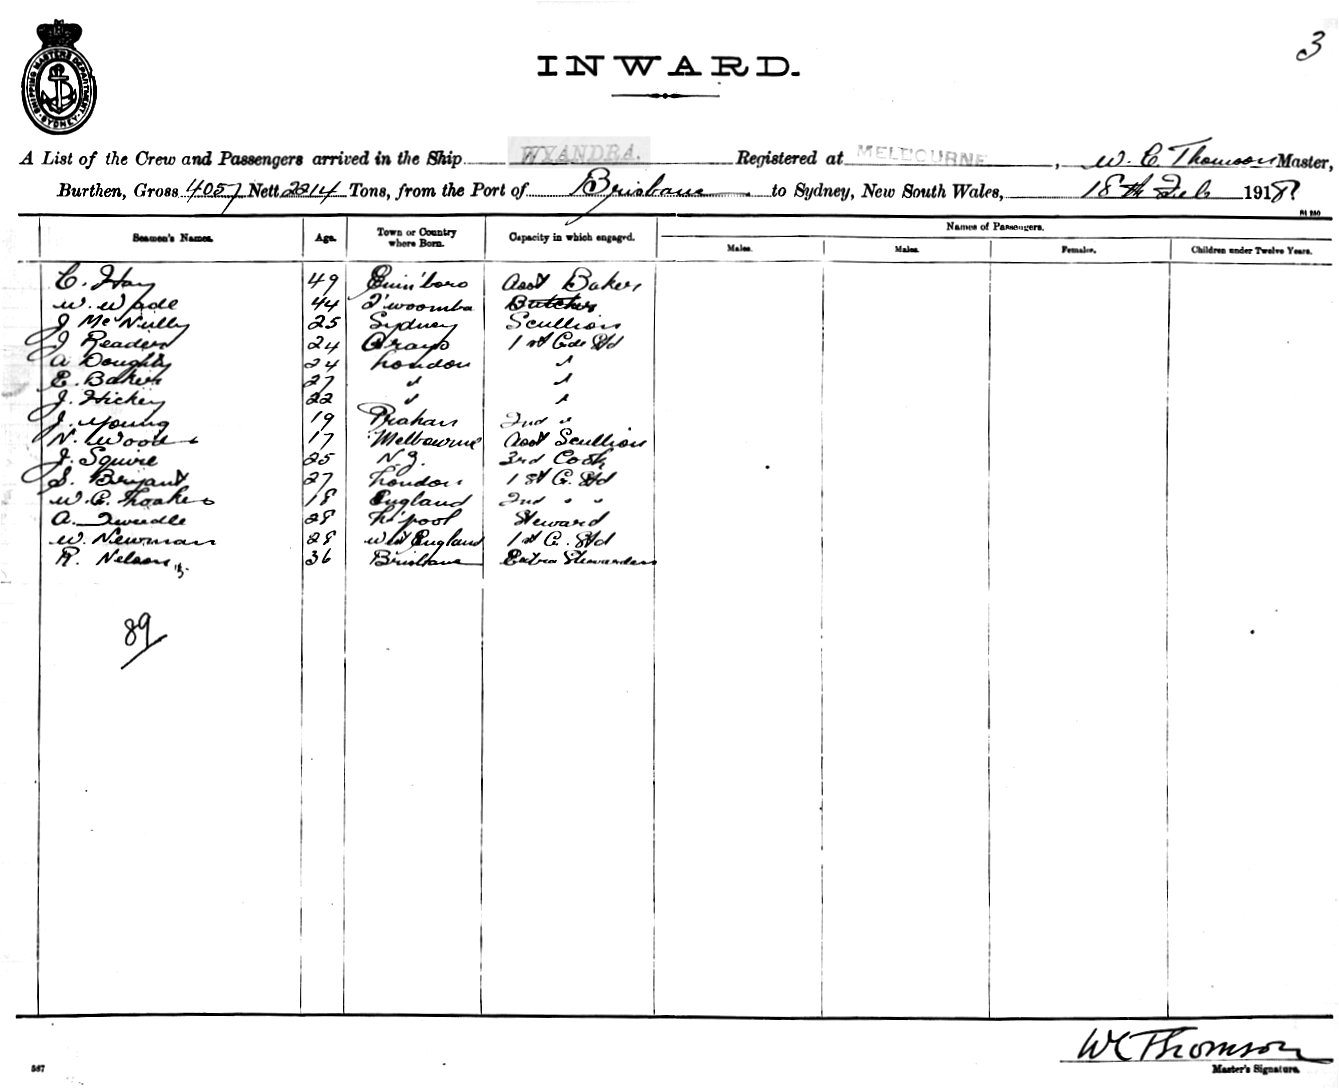 3
SHIPPING MASTERS DEPARTMENT
SYDNEY
INWARD.
A List of the Crew and Passengers arrived in the Ship WYANDRA. Registered at MELBOURNE, W. C. Thomson Master,
Burthen, Gross 4057 Nett 2214 Tons, from the Port of Brisbane to Sydney, New South Wales, 18th Feb 1918
Seamen's Names. Age. Town or Country where Born. Capacity in which engaged. Names of Passengers.
Males. Males. Females. Children under Twelve Years.
C. Hay 49 Euin'boro Asst Baker
W. Wade 44 T'woomba Butcher
J McNully 25 Sydney Scullion
J Reader 24 Grays 1st Std
A Doughty 24 London "
E. Baker 27 " "
J. Hickey 22 " "
J. Young 19 Prahan 2nd "
N. Wood 17 Melbourne Asst Scullion
J. Squire 25 N.Z. 3rd Cook
S. Bryant 27 London 1st C. Std
W. C. Thoake 18 England 2nd " "
A. Tweedle 28 L'pool Steward
W. Newman 28 West England 1st C. Std
R. Nelson 36 Brisbane Extra Stewardess
89
WC Thomson
Master's Signature.
587